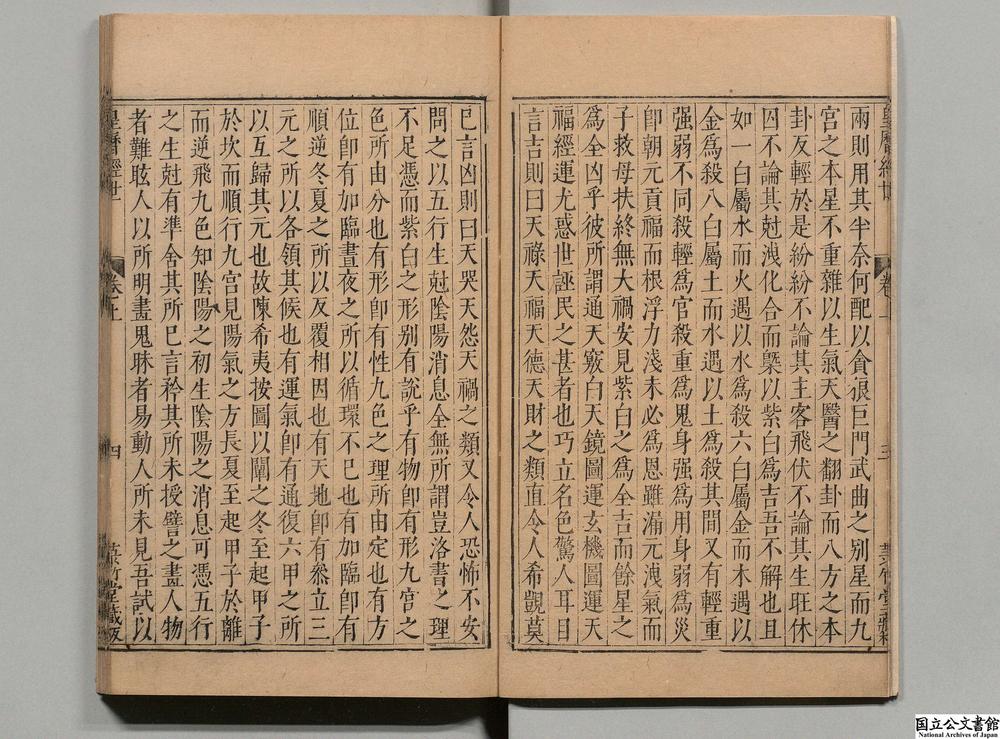 兩則用其半奈何配以貪狼巨門武曲之別星而九
宮之本星不重雜以生氣天醫之翻卦而八方之本
卦反輕於是紛紛不論其主客飛伏不論其生旺休
囚不論其尅洩化合而槩以紫白爲吉吾不解也且
如一白屬水而火遇以水爲殺六白屬金而木遇以
金爲殺八白屬土而水遇以土爲殺其間又有輕重
强弱不同殺輕爲官殺重爲鬼身强爲用身弱爲災
卽朝元貢福而根浮力淺未必爲恩雖漏元洩氣而
子救母扶終無大禍安見紫白之爲全吉而餘星之
爲全凶乎彼所謂通天竅白天鏡圖運玄機圖運天
福經運尤惑世誣民之甚者也巧立名色驚人耳目
言吉則曰天祿天福天德天財之類直令人希覬莫
三
巳言凶則曰天哭天怨天禍之類又令人恐怖不安
問之以五行生尅陰陽消息全無所謂豈洛書之理
不足憑而紫白之形别有說乎有物卽有形九宮之
色所由分也有形卽有性九色之理所由定也有方
位卽有加臨晝夜之所以循環不巳也有加臨卽有
順逆冬夏之所以反覆相因也有天地卽有叅立三
元之所以各領其候也有運氣卽有通復六甲之所
以互歸其元也故陳希夷按圖以闡之冬至起甲子
於坎而順行九宮見陽氣之方長夏至起甲子於離
而逆飛九色知陰陽之初生陰陽之消息可憑五行
之生尅有準舍其所巳言矜其所未授譬之畫人物
者難眩人以所明畫鬼眛者易動人所未見吾試以
皇曆經世
卷上
四
菉竹堂藏板
国立公文書館
National Archives of Japan